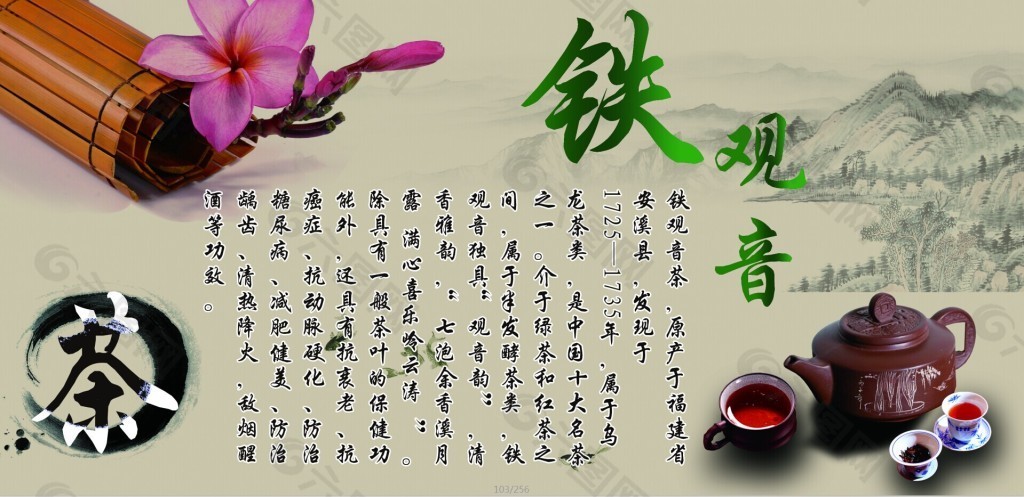 铁
观
音
铁观音茶,原产于福建省
安溪县,发现于
1725—1735年,属于乌
龙茶类,是中国十大名茶
之一。介于绿茶和红茶之
间,属于半发酵茶类,铁
观音独具“观音韵”,清
香雅韵,“七泡余香溪月
露 满心喜乐岭云涛”。
除具有一般茶叶的保健功
能外,还具有抗衰老、抗
癌症、抗动脉硬化、防治
糖尿病、减肥健美、防治
龋齿、清热降火,敌烟醒
酒等功效。
茶
103/256